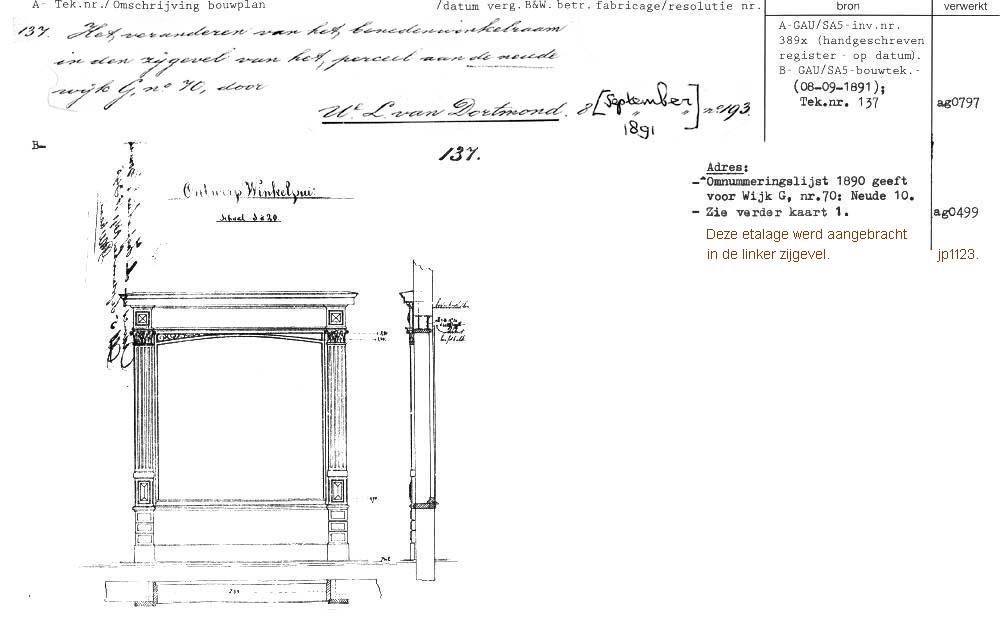 A- Tek.nr./Omschrijving bouwplan /datum verg.B&W.betr.fabricage/resolutie nr. bron verwerkt
137. Het veranderen van het benedenwinkelraam
in den zijgevel van het perceel aan de neude
wijk G, no 70, door
W. L. van Dortmond. 8 [September 1891] no 193.
A-GAU/SA5-inv.nr.
389x (handgeschreven
register - op datum).
B- GAU/SA5-bouwtek.-
(08-09-1891);
Tek.nr. 137 ag0797
B-
137.
Ontwerp Winkelpui:
Schaal 1 à 20
Adres:
-"Omnummeringslijst 1890 geeft
voor Wijk G, nr.70: Neude 10.
- Zie verder kaart 1. ag0499
Deze etalage werd aangebracht
in de linker zijgevel. jp1123.